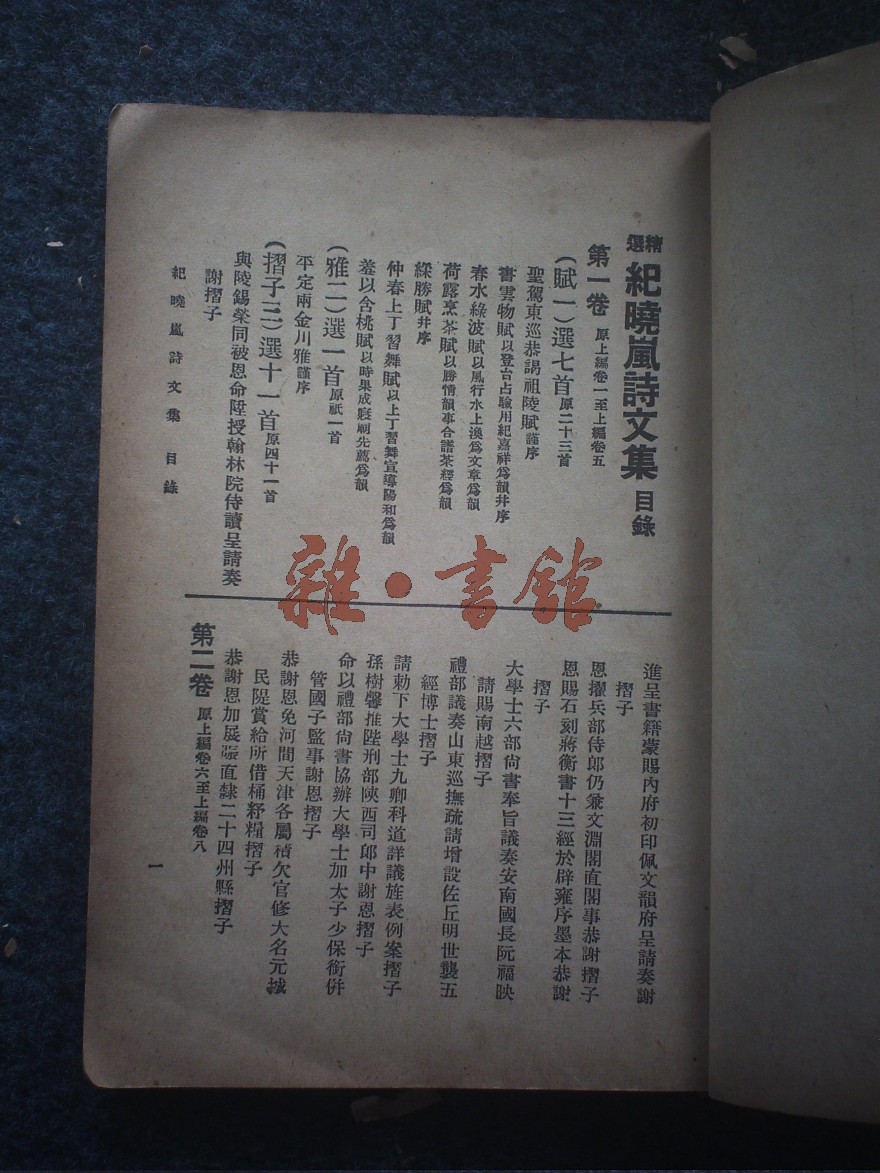 精選 紀曉嵐詩文集 目錄
第一卷 原上編卷一至上編卷五
(賦一)選七首 原二十三首
聖駕東巡恭謁祖陵賦 謹序
書雲物賦 以登台占驗用紀嘉祥為韻并序
春水綠波賦 以風行水上渙為文章為韻
荷露烹茶賦 以勝情韻事合譜茶經為韻
綵勝賦 并序
仲春上丁習舞賦 以上丁習舞宣導陽和為韻
羞以含桃賦 以時果成先薦為韻
(雅二)選一首 原祇一首
平定兩金川雅 謹序
(摺子三)選十一首 原四十一首
與陵錫榮同被恩命陞授翰林院侍讀呈請奏
謝摺子
紀曉嵐詩文集 目錄
進呈書籍蒙賜內府初印佩文韻府呈請奏謝
摺子
恩擢兵部侍郎仍兼文淵閣直閣事恭謝摺子
恩賜石刻蔣衡書十三經於辟雍序墨本恭謝
摺子
大學士六部尚書奉旨議奏安南國長阮福映
請賜南越摺子
禮部議奏山東巡撫疏請增設左丘明世襲五
經博士摺子
請勅下大學士九卿科道詳議旌表例案摺子
孫樹馨推陞刑部陝西司郎中謝恩摺子
命以禮部尚書協辦大學士加太子少保銜併
管國子監事謝恩摺子
恭謝恩免河間天津各屬積欠官修大名元城
民隄賞給所借桶籽糧摺子
恭謝恩加展賑直隸二十四州縣摺子
第二卷 原上編卷六至上編卷八
一
雜·書館